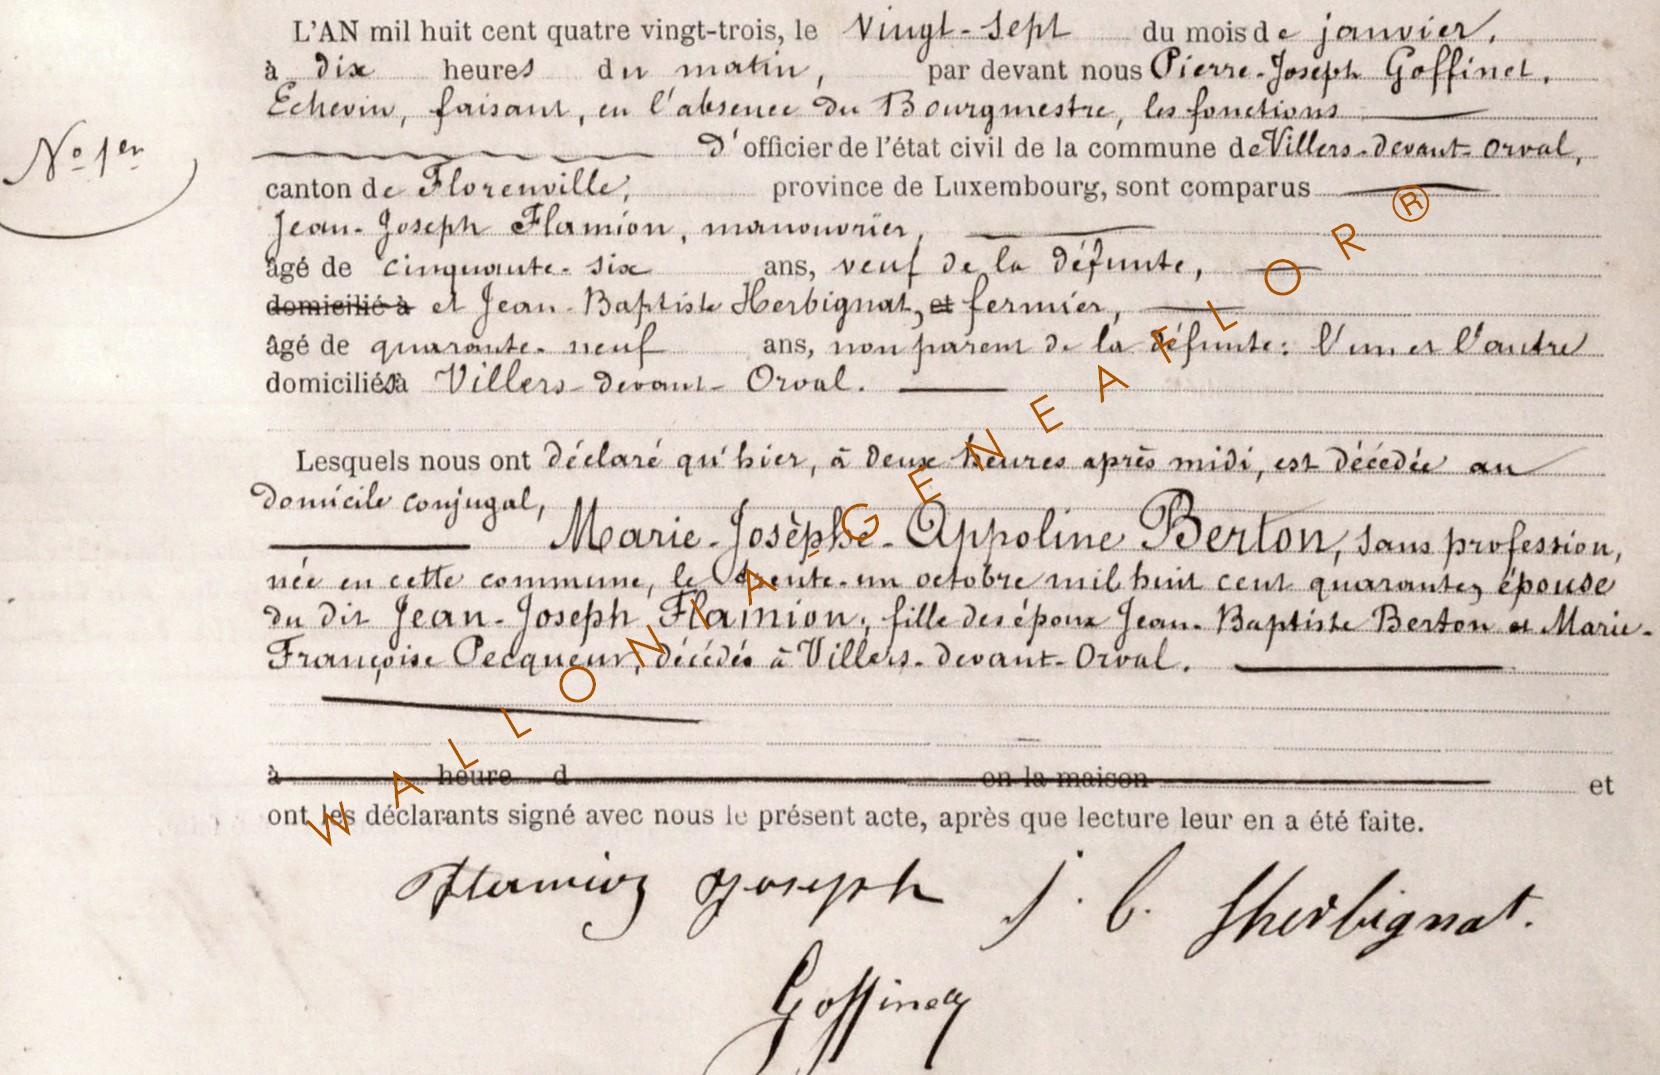 L'AN mil huit cent quatre vingt-trois, le vingt-sept du mois de janvier,
à dix heures du matin, par devant nous Pierre-Joseph Goffinet,
Echevin, faisant, en l'absence du Bourgmestre, les fonctions
N° 1er
d'officier de l'état civil de la commune de Villers-devant-Orval,
canton de Florenville, province de Luxembourg, sont comparus
Jean-Joseph Flamion, manouvrier,
âgé de cinquante-six ans, veuf de la défunte,
domicilié à et Jean-Baptiste Herbignat, et fermier,
âgé de quarante-neuf ans, non parent de la défunte: l'un et l'autre
domiciliés à Villers-devant-Orval.
Lesquels nous ont déclaré qu'hier, à deux heures après midi, est décédée au
domicile conjugal,
Marie-Josèphe-Appoline Berton, sans profession,
née en cette commune, le trente-un octobre mil huit cent quarante, épouse
du dit Jean-Joseph Flamion, fille des époux Jean-Baptiste Berton et Marie-
Françoise Pecqueur, décédés à Villers-devant-Orval.
à heure d en la maison et
ont les déclarants signé avec nous le présent acte, après que lecture leur en a été faite.
Flamion Joseph J. B. Herbignat.
Goffinet
WALLONIA-GENEAFLOR®